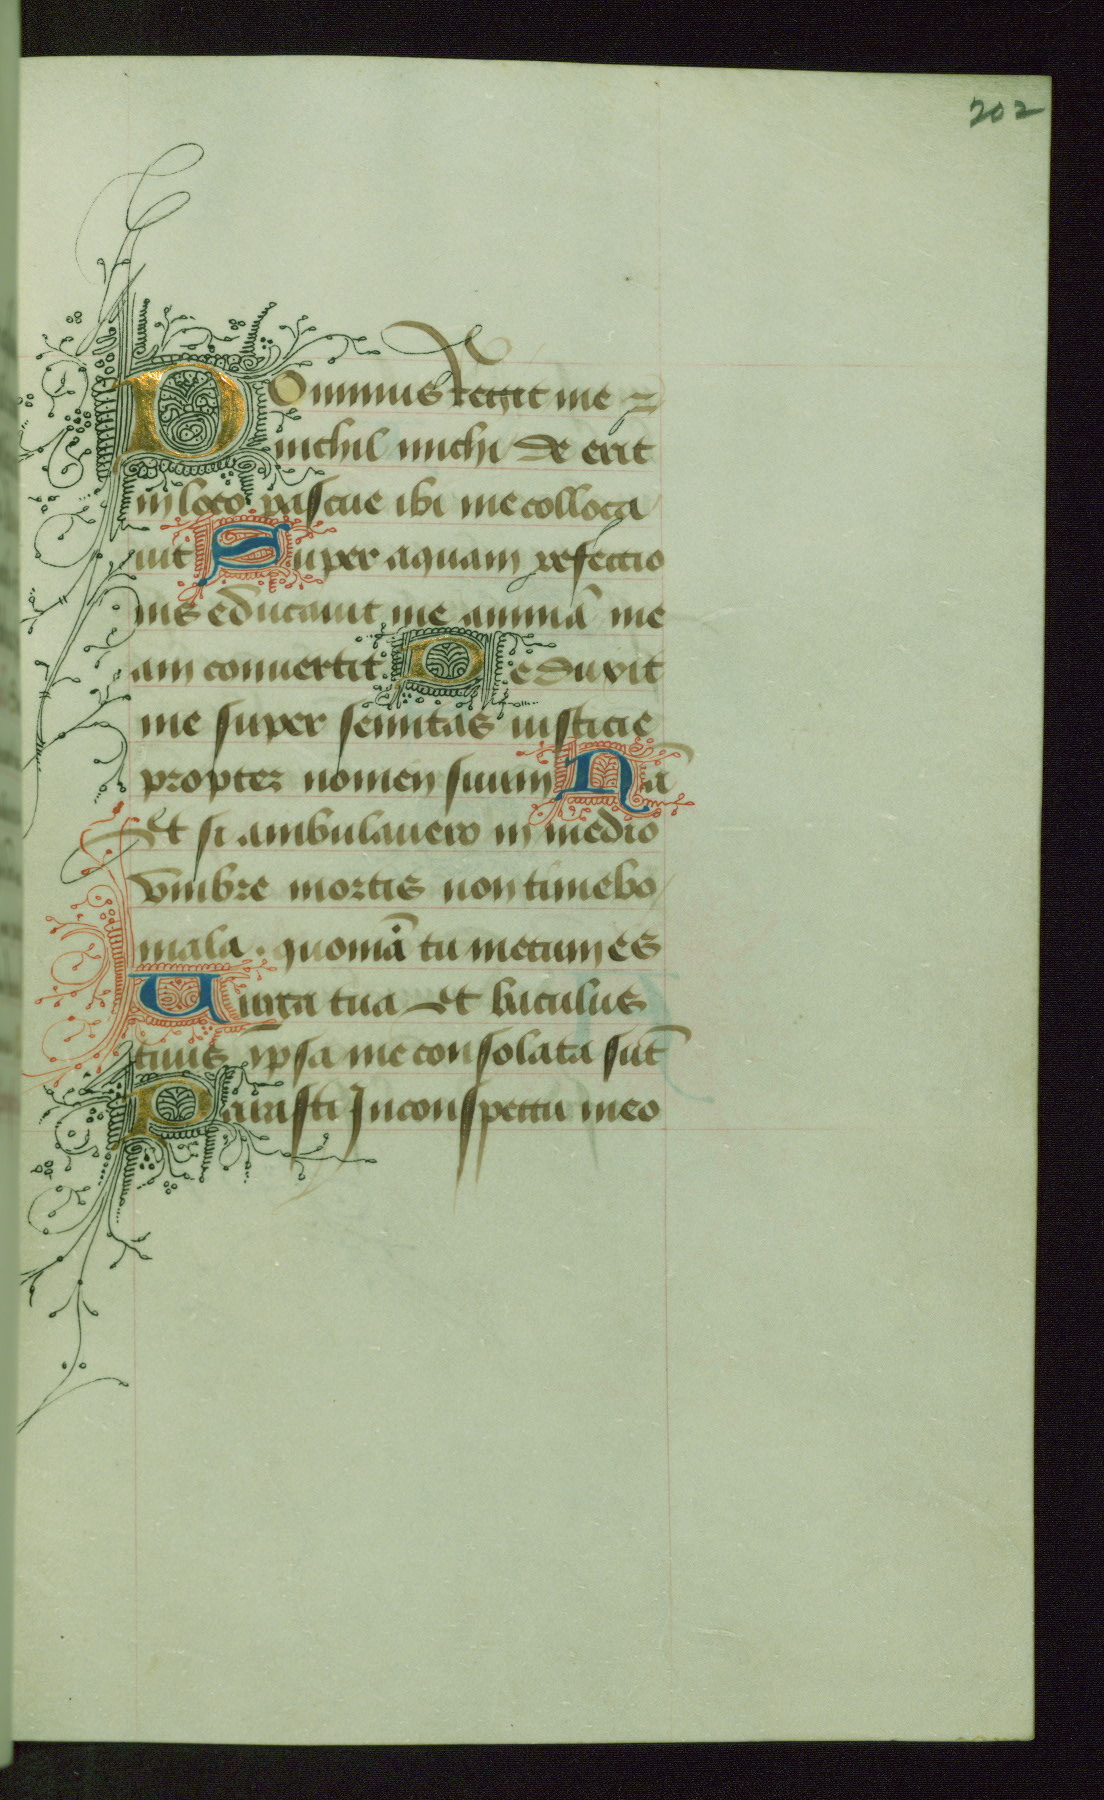 202
Dominus Regit me ⁊
nichil michi de erit
in loco pascue ibi me colloca
uit Super aquam refectio
nis educauit me animā me
am conuertit Deduxit
me super semitas iusticie
propter nomen suum Nā
Et si ambulauero in medio
vmbre mortis non timebo
mala. quoniā tu mecum es
Uirga tua et baculus
tuus ipsa me consolata sūt
Parasti In conspectu meo